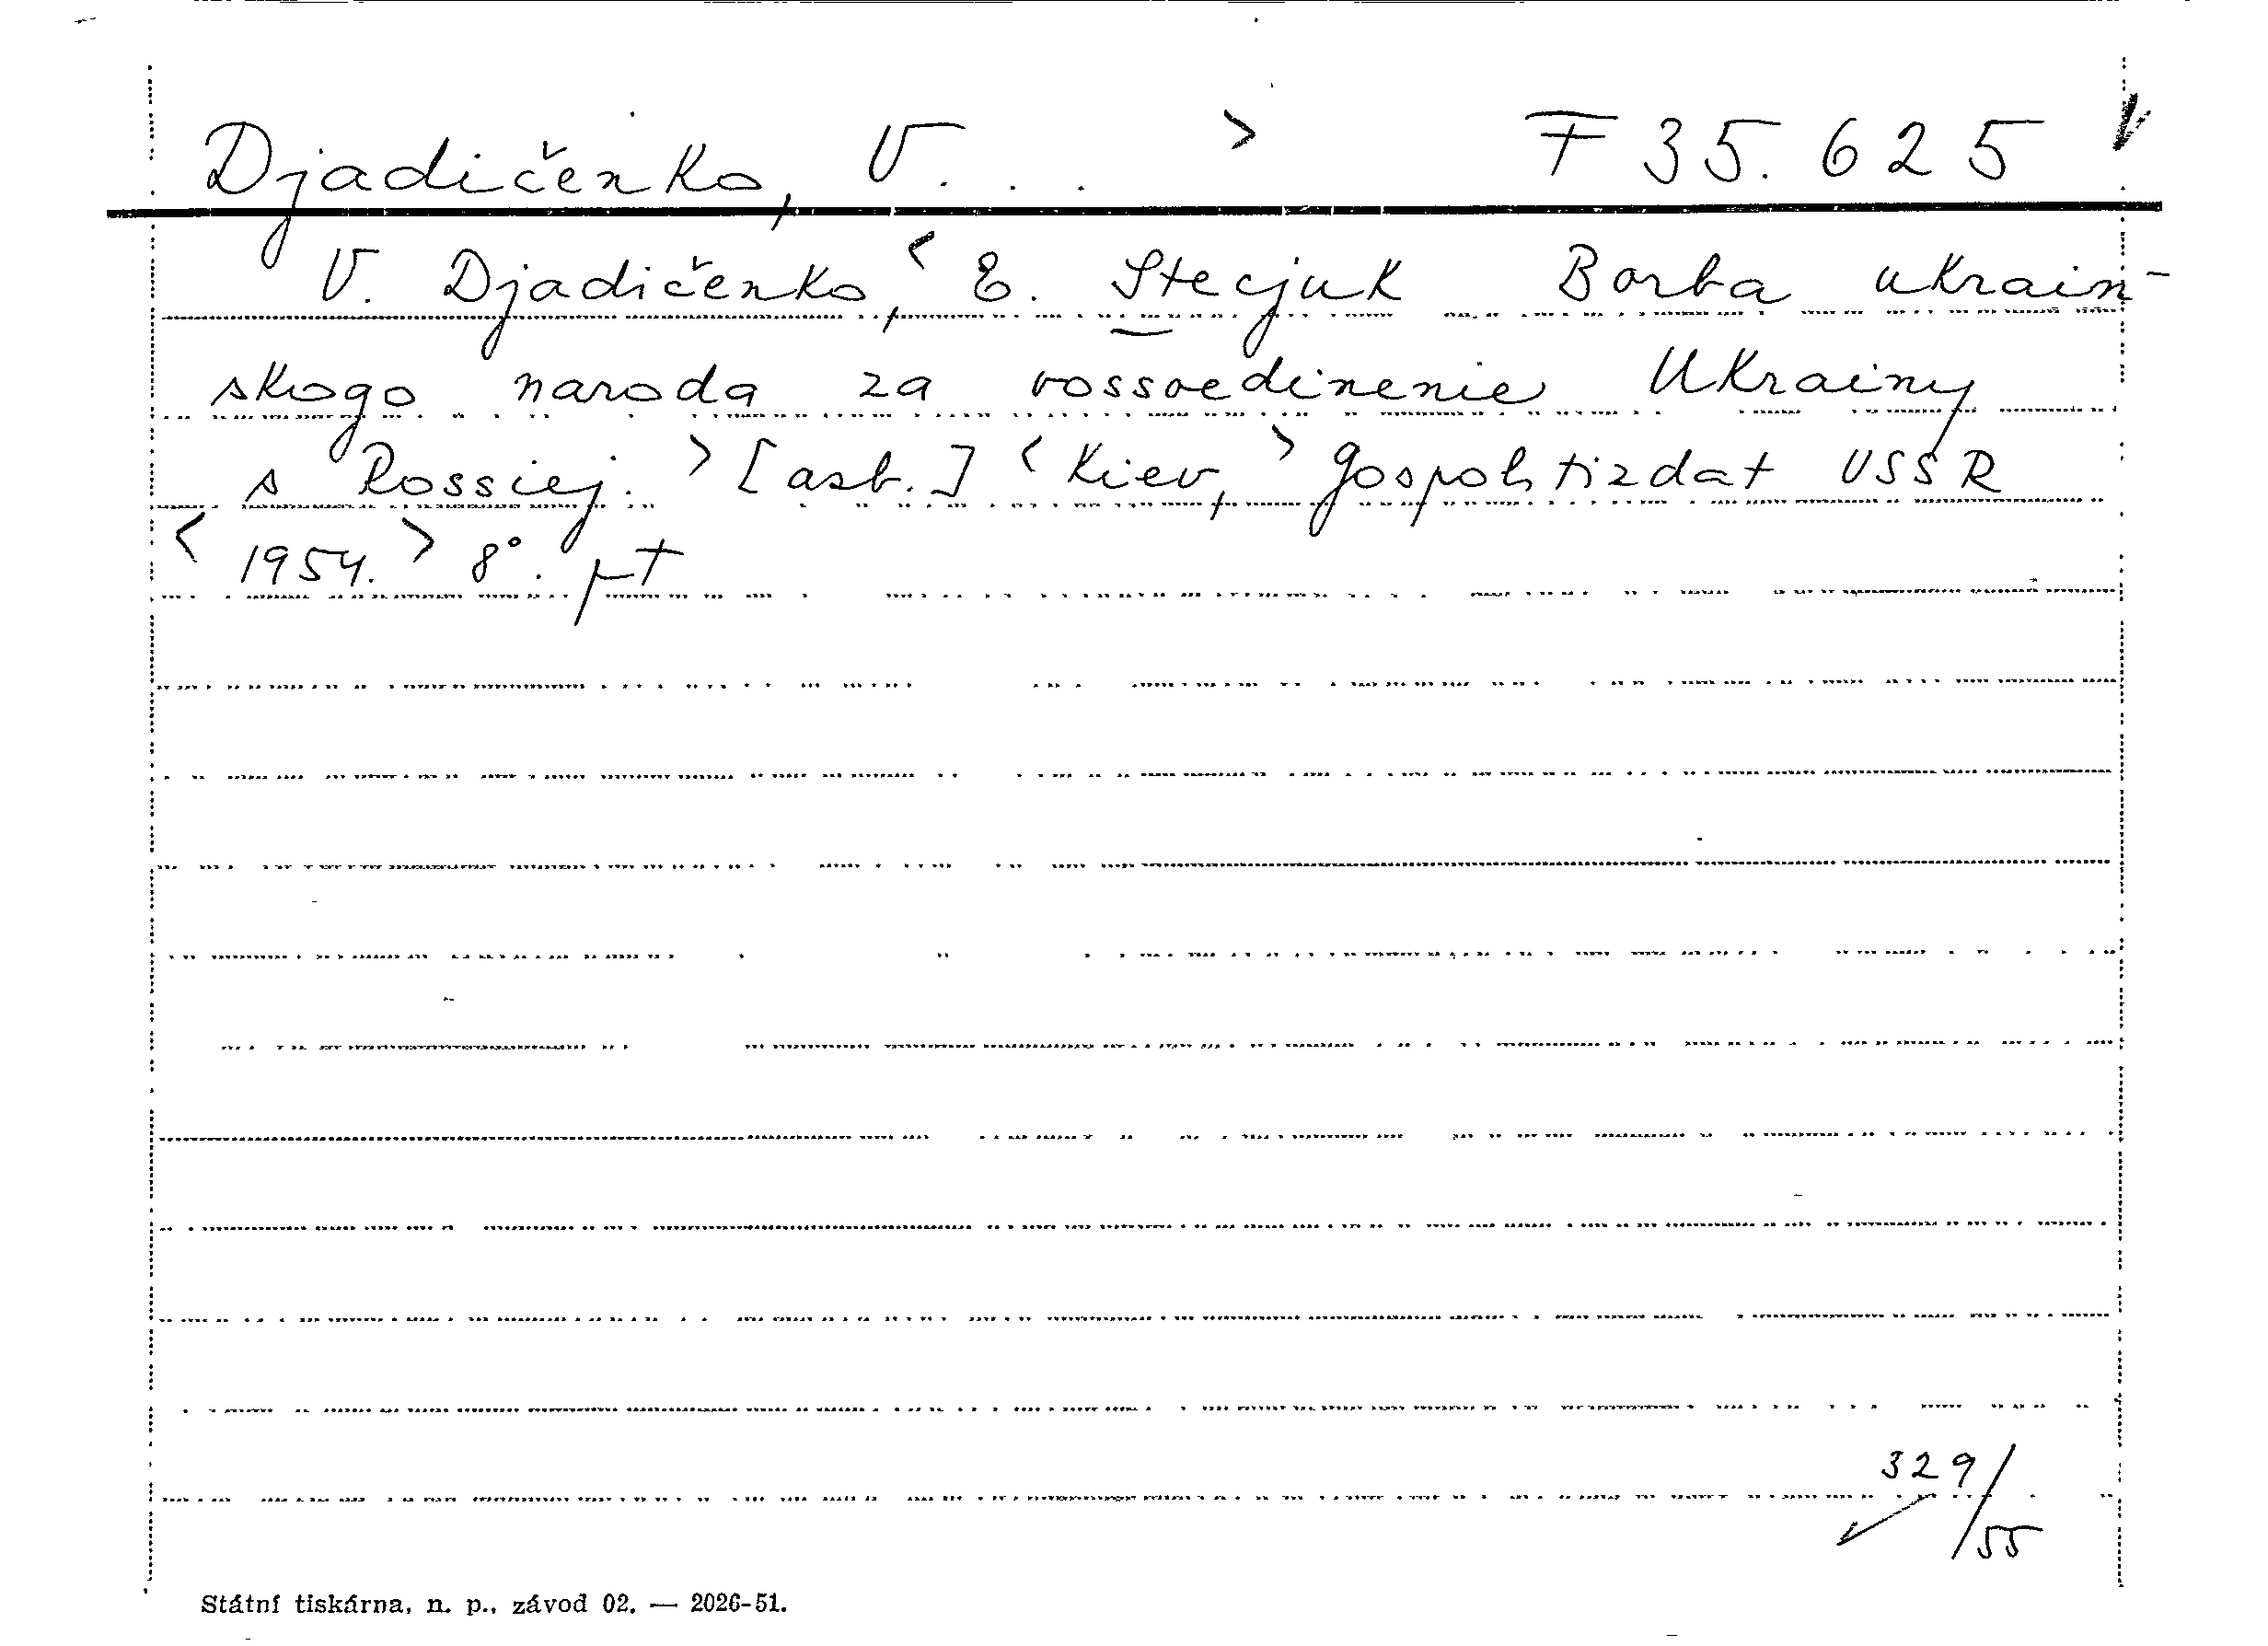 Djadičenko, V. . . > F 35.625
V. Djadičenko, < E. Stecjuk Borba ukrain-
skogo naroda za vossoedinenie Ukrainy
s Rossiej. > [asb.] < Kiev, > Gospolitizdat USSR
< 1954. > 8°. pt
329/55
Státní tiskárna, n. p., závod 02. — 2026-51.